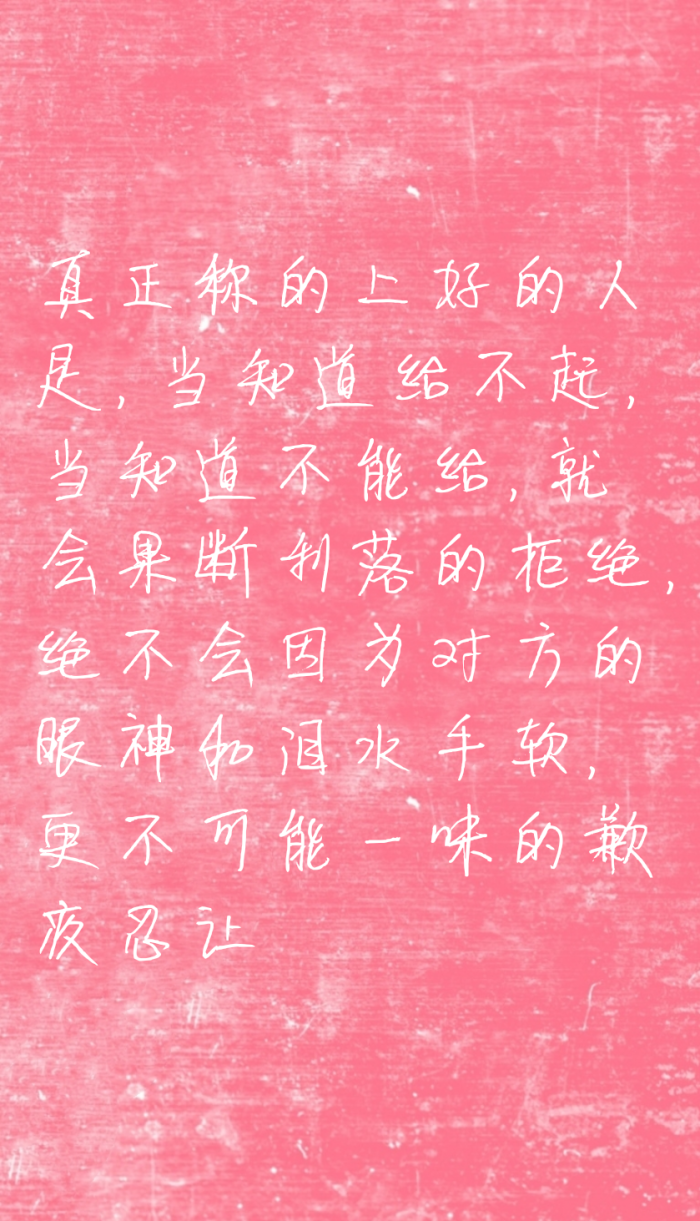 真正称的上好的人
是,当知道给不起,
当知道不能给,就
会果断利落的拒绝,
绝不会因为对方的
眼神和泪水手软,
更不可能一味的歉
疚忍让